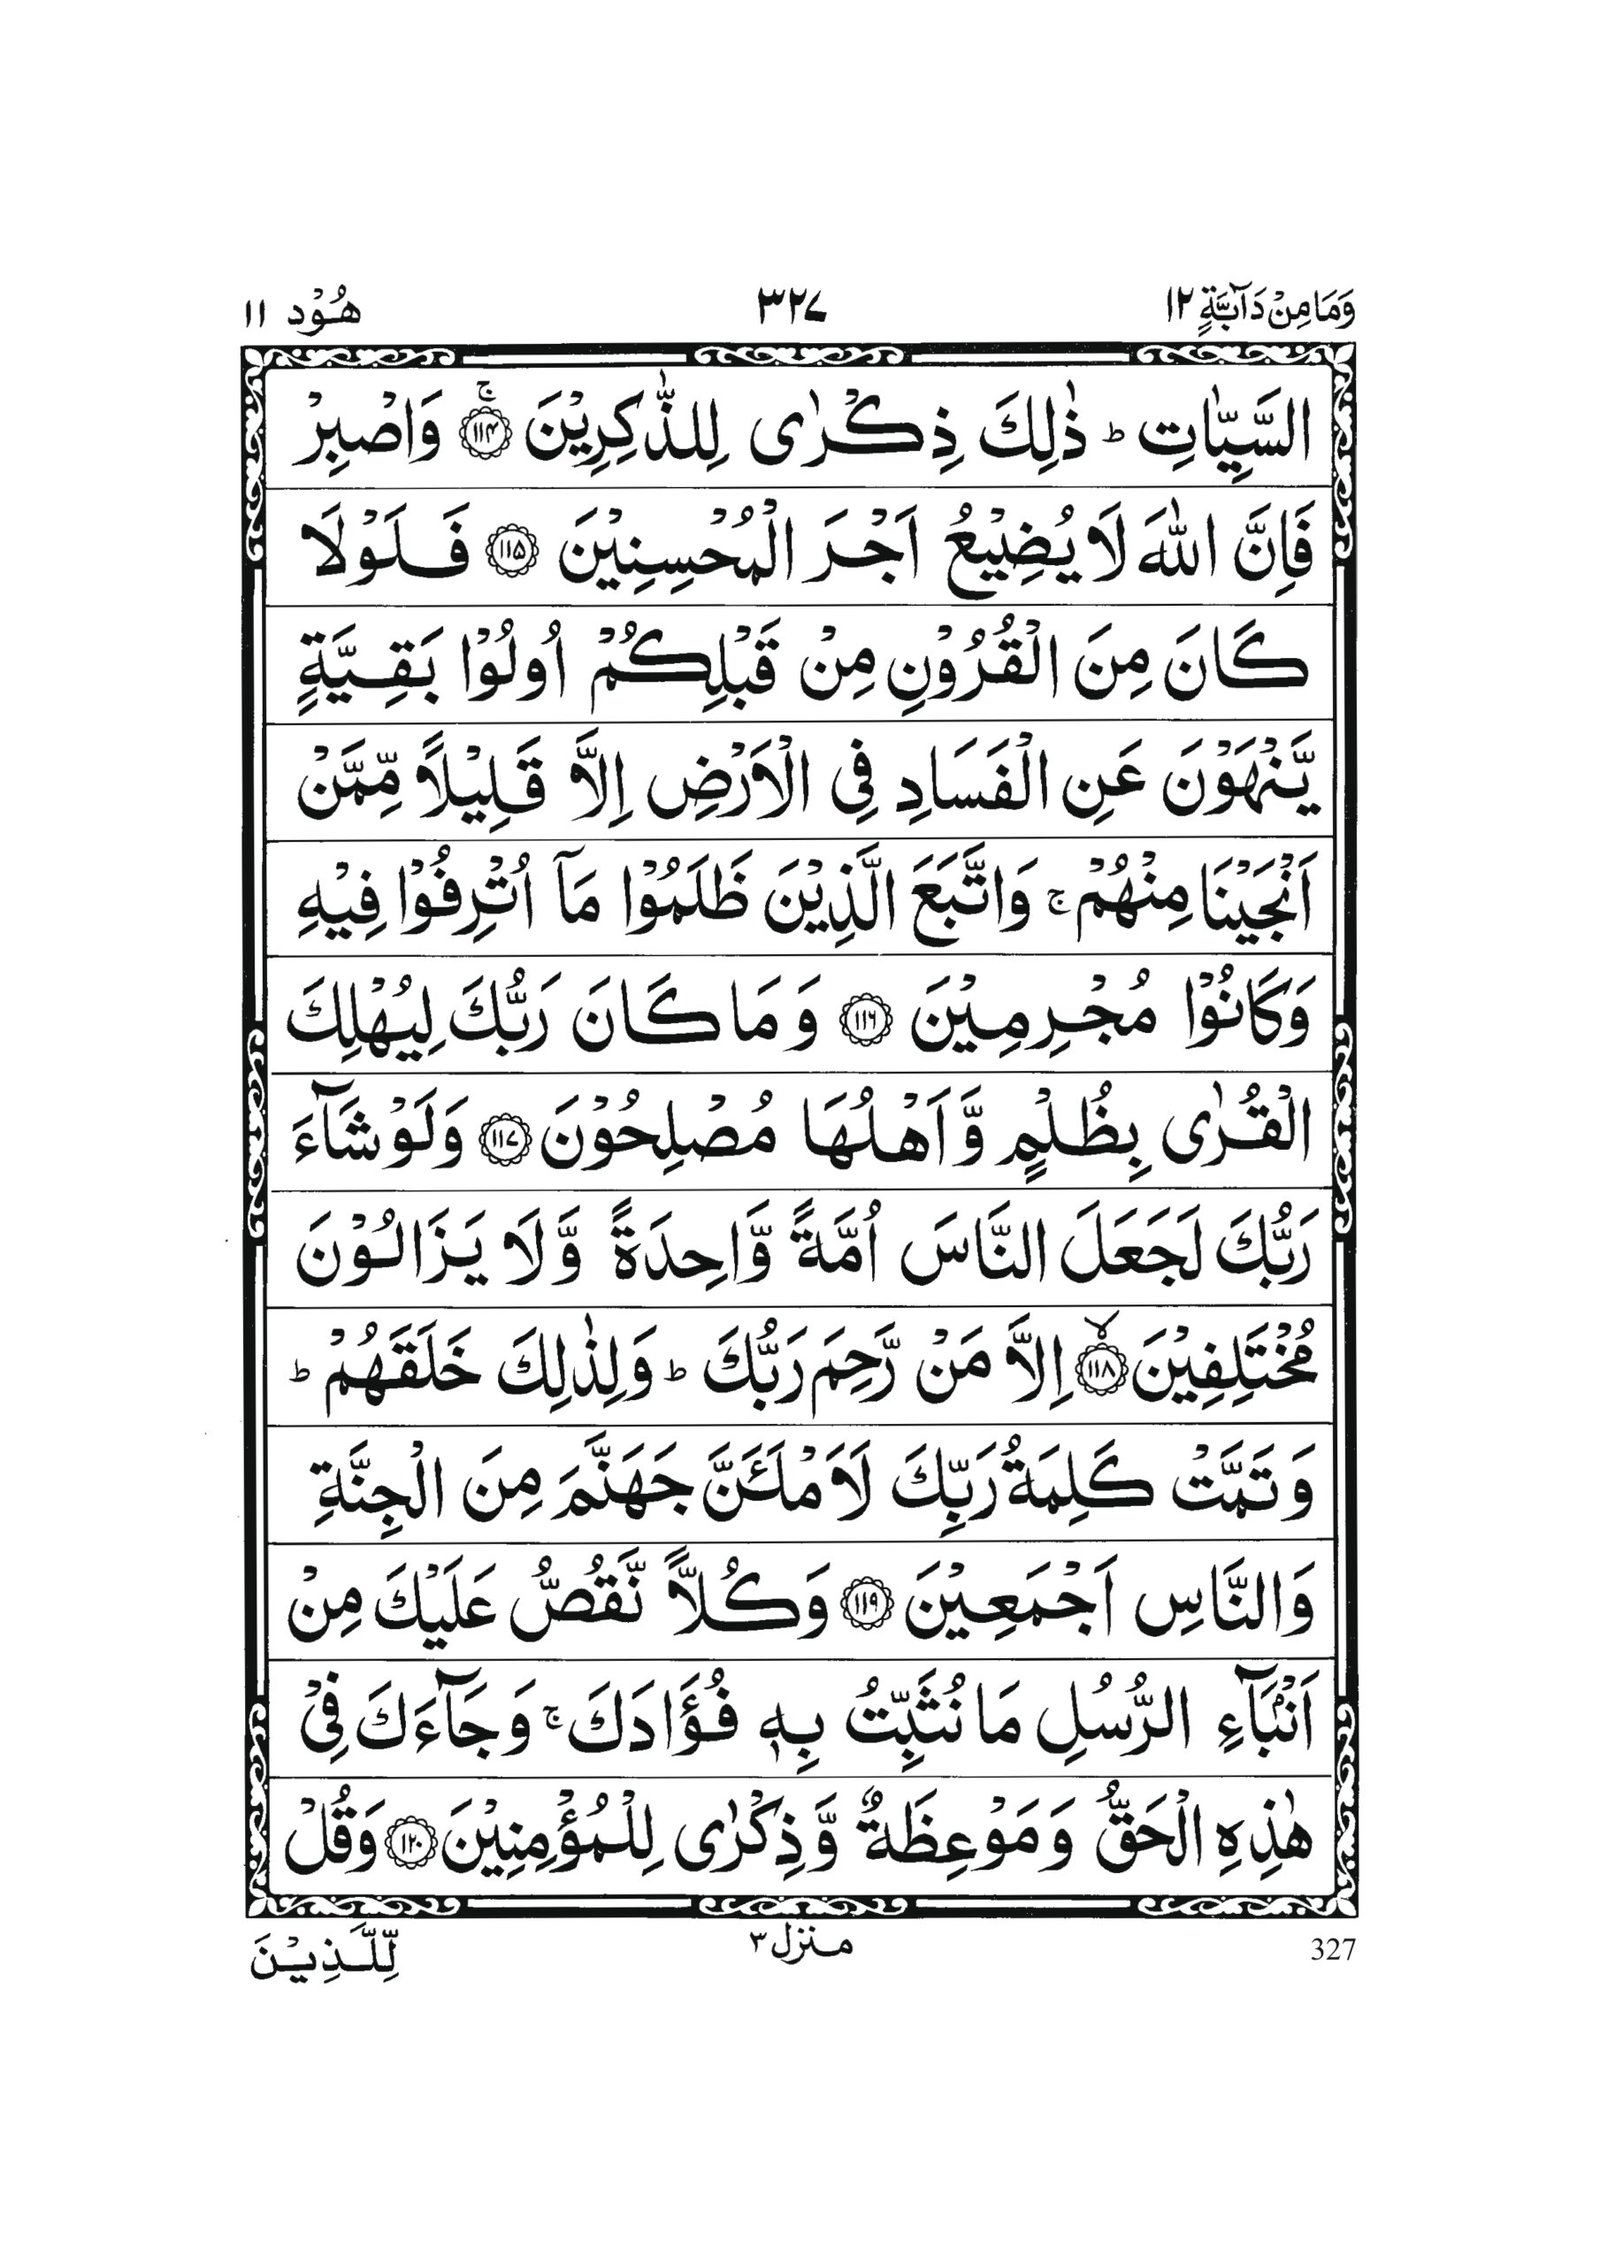 وَمَا مِنْ دَآبَّةٍ ١٢ ٣٢٧ هُوْد ١١
السَّيِّاٰتِ ؕ ذٰلِكَ ذِكْرٰى لِلذّٰكِرِيْنَ ۚ ﴿۱۱۴﴾ وَاصْبِرْ
فَاِنَّ اللّٰهَ لَا يُضِيْعُ اَجْرَ الْمُحْسِنِيْنَ ﴿۱۱۵﴾ فَلَوْلَا
كَانَ مِنَ الْقُرُوْنِ مِنْ قَبْلِكُمْ اُولُوْا بَقِيَّةٍ
يَّنْهَوْنَ عَنِ الْفَسَادِ فِى الْاَرْضِ اِلَّا قَلِيْلًا مِّمَّنْ
اَنْجَيْنَا مِنْهُمْ ۚ وَاتَّبَعَ الَّذِيْنَ ظَلَمُوْا مَآ اُتْرِفُوْا فِيْهِ
وَكَانُوْا مُجْرِمِيْنَ ﴿۱۱۶﴾ وَمَا كَانَ رَبُّكَ لِيُهْلِكَ
الْقُرٰى بِظُلْمٍ وَّاَهْلُهَا مُصْلِحُوْنَ ﴿۱۱۷﴾ وَلَوْ شَآءَ
رَبُّكَ لَجَعَلَ النَّاسَ اُمَّةً وَّاحِدَةً وَّلَا يَزَالُوْنَ
مُخْتَلِفِيْنَ ۙ ﴿۱۱۸﴾ اِلَّا مَنْ رَّحِمَ رَبُّكَ ؕ وَلِذٰلِكَ خَلَقَهُمْ ؕ
وَتَمَّتْ كَلِمَةُ رَبِّكَ لَاَمْلَئَنَّ جَهَنَّمَ مِنَ الْجِنَّةِ
وَالنَّاسِ اَجْمَعِيْنَ ﴿۱۱۹﴾ وَكُلًّا نَّقُصُّ عَلَيْكَ مِنْ
اَنْۢبَآءِ الرُّسُلِ مَا نُثَبِّتُ بِهٖ فُؤَادَكَ ۚ وَجَآءَكَ فِىْ
هٰذِهِ الْحَقُّ وَمَوْعِظَةٌ وَّذِكْرٰى لِلْمُؤْمِنِيْنَ ﴿۱۲۰﴾ وَقُلْ
327 منزل ٣ لِّلَّذِيْنَ